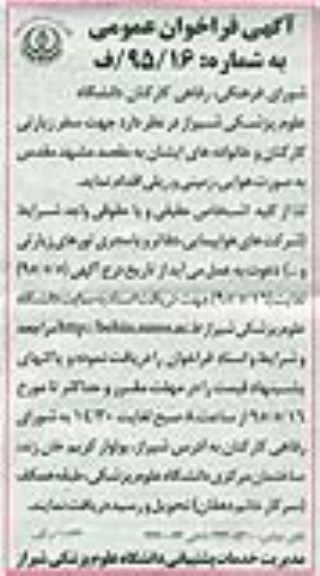 آگهی فراخوان عمومی
به شماره: ۹۵/۱۶/ف
شورای فرهنگی، رفاهی کارکنان دانشگاه
علوم پزشکی شیراز در نظر دارد جهت سفر زیارتی
کارکنان و خانواده های ایشان به مقصد مشهد مقدس
به صورت هوایی، زمینی و ریلی اقدام نماید.
لذا از کلیه اشخاص حقیقی و یا حقوقی واجد شرایط
(شرکت های هواپیمایی، دفاتر و یا مجری تورهای زیارتی
و ...) دعوت به عمل می آید از تاریخ درج آگهی
جهت دریافت اسناد به سایت دانشگاه
علوم پزشکی شیراز مراجعه
و شرایط و اسناد فراخوان را دریافت نموده و پاکتهای
پیشنهاد قیمت را در مهلت مقرر و حداکثر تا مورخ
از ساعت ۸ صبح لغایت ۱۴:۳۰ به شورای
رفاهی کارکنان به آدرس شیراز، بولوار کریم خان زند،
ساختمان مرکزی دانشگاه علوم پزشکی، طبقه همکف
تحویل و رسید دریافت نمایند.
مدیریت خدمات پشتیبانی دانشگاه علوم پزشکی شیراز